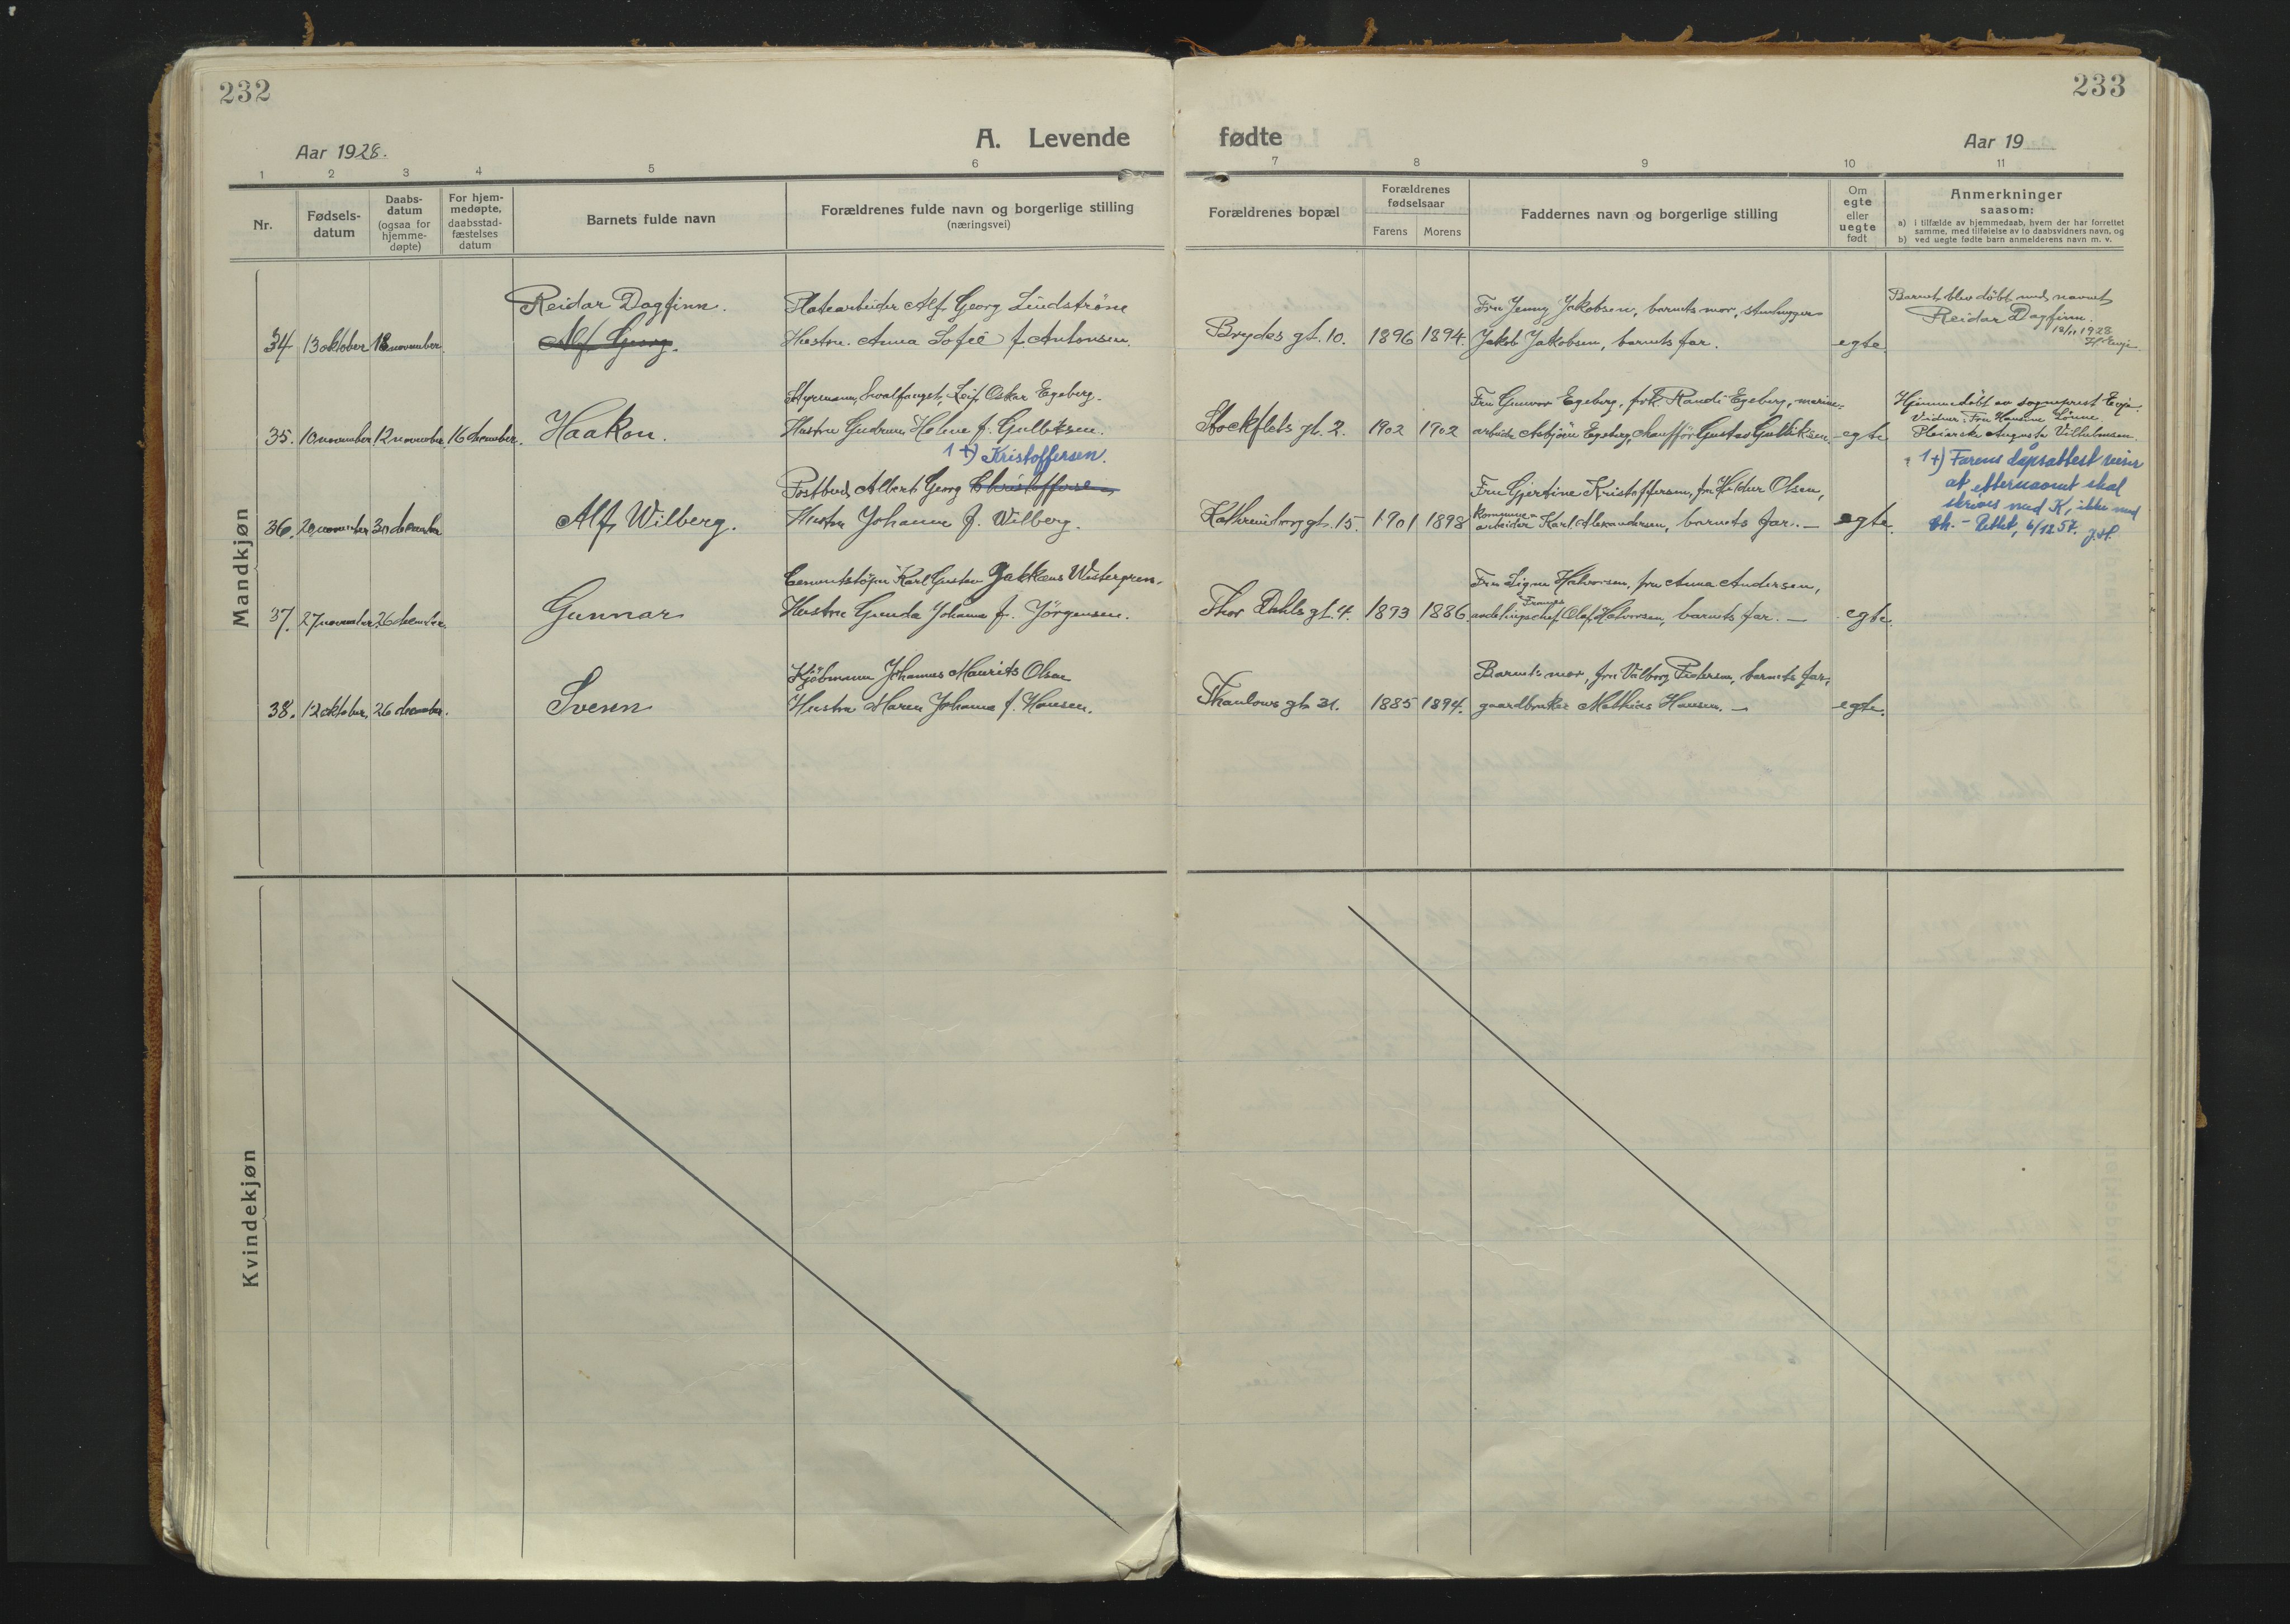 232
233
A. Levende fødte
Aar 1928.
Aar 19
1 2 3 4 5 6 7 8 9 10 11
Nr.
Fødsels-
datum
Daabs-
datum
(ogsaa for
hjemme-
døpte)
For hjem-
medøpte,
daabsstad-
fæstelses
datum
Barnets fulde navn
Forældrenes fulde navn og borgerlige stilling
(næringsvei)
Forældrenes bopæl
Forældrenes
fødselsaar
Farens Morens
Faddernes navn og borgerlige stilling
Om
egte
eller
uegte
født
Anmerkninger
saasom:
a) i tilfælde av hjemmedaab, hvem der har forrettet
samme, med tilføielse av to daabsvidners navn, og
b) ved uegte fødte barn anmelderens navn m. v.
Mandkjøn
Reidar Dagfinn. Platearbeider Alf Georg Lindstrøm Fru Jenny Jakobsen, barnets mor, stenhugger Barnet blev døbt med navnet
Reidar Dagfinn.
34 13 oktober 18 november. Alf Georg. Hustru Anna Sofie f. Antonsen. Brydes gt. 10. 1896 1894. Jakob Jakobsen, barnets far. egte 18/11 1928
H Evje.
Styrmann, hvalfanget, Leif Oskar Egeberg. Fru Gunvor Egeberg, frk. Randi Egeberg, marine- Hjemmedøbt av sogneprest Evje.
35. 10 november 12 november 16 december. Haakon. Hustru Gudrun Helene f. Gulliksen. Stockflets gt. 2. 1902 1902 arbeider Asbjørn Egeberg, chauffør Gustav Gulliksen. egte Vidner: Fru Hanna Lønne
Pleierske Augusta Vilhelmsen.
1+) Kristoffersen.
1+) Farens dåpsattest viser
at etternavnet skal
skrives med K, ikke med
Ch. - Rettet, 6/12 57. J.H.
Postbud Albert Georg Christoffersen Fru Gjertine Kristoffersen, fru Hildur Olsen,
36. 20 november 30 december Alf Wilberg. Hustru Johanne f. Wilberg. Kathrineborg gt. 15. 1901 1898 kommune-
arbeider Karl Alexandersen, barnets far. — egte.
Cementstøper Karl Gustav Jakkæus Westergren. Fru Signe Halvorsen, fru Anna Andersen,
37. 27 november 26 december. Gunnar Hustru Gunda Johanne f. Jørgensen. Thor Dahls gt. 4. 1893 1886. avdelingschef Olaf Halvorsen, barnets far. — egte.
Kjøbmann Johannes Maurits Olsen Barnets mor, fru Valborg Pedersen, barnets far,
38. 12 oktober, 26 december. Svenn Hustru Maren Johanne f. Hansen. Thaulows gt. 31. 1885 1894. gaardbruker Mathias Hansen. — egte.
Kvindekjøn